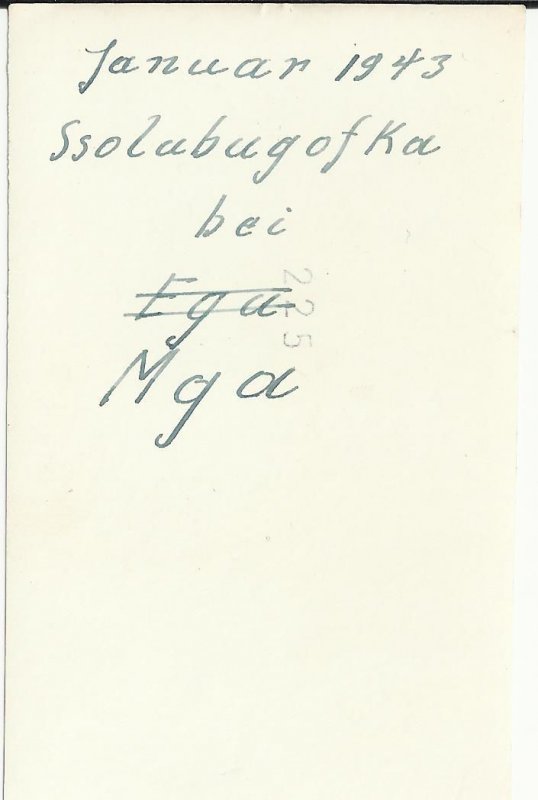 Januar 1943
Ssolubugofka
bei
Ega
225
Mga